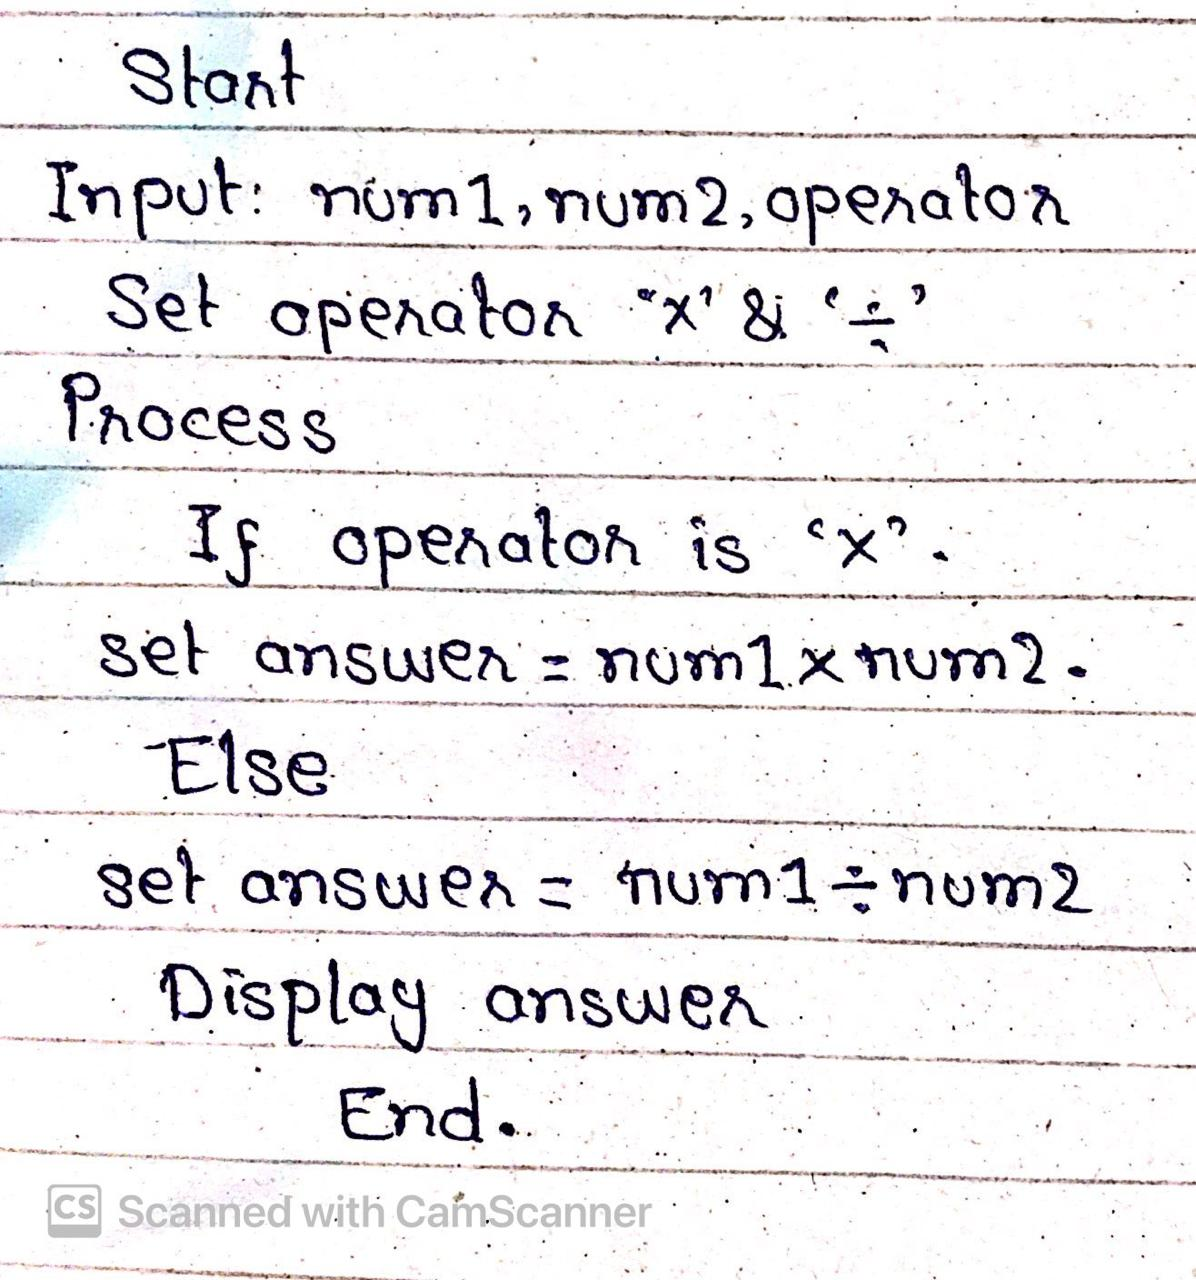 Start
Input: num1, num2, operator
Set operator "x' & '÷'
Process
If operator is 'x'.
set answer = num1 x num2.
Else
set answer = num1 ÷ num2
Display answer
End.
CS Scanned with CamScanner